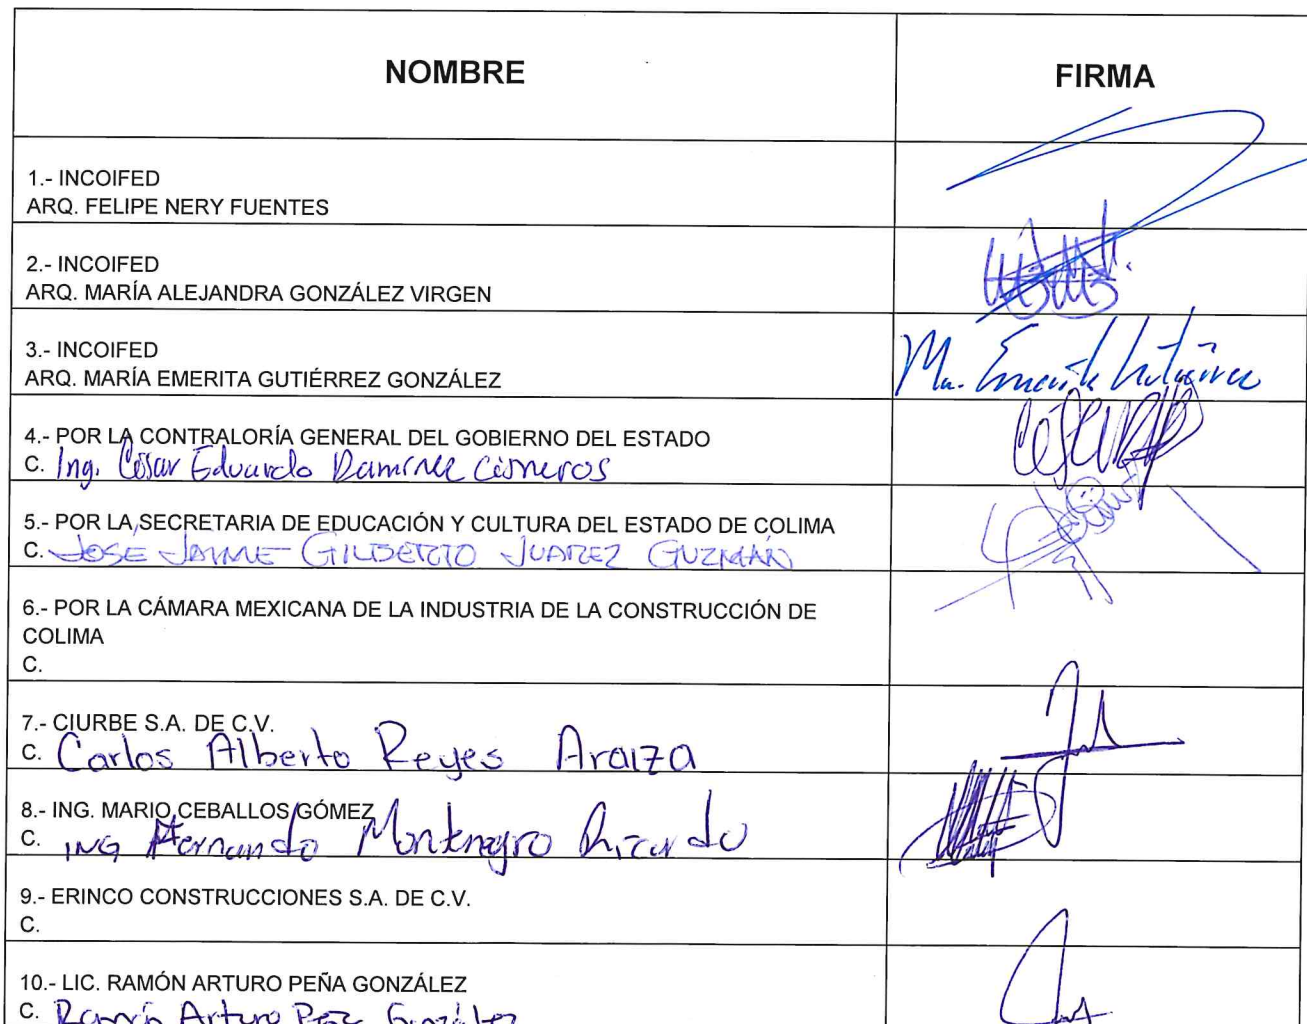 NOMBRE
FIRMA
1.- INCOIFED
ARQ. FELIPE NERY FUENTES
2.- INCOIFED
ARQ. MARÍA ALEJANDRA GONZÁLEZ VIRGEN
3.- INCOIFED
ARQ. MARÍA EMERITA GUTIÉRREZ GONZÁLEZ
Ma. Emerita Gutiérrez
4.- POR LA CONTRALORÍA GENERAL DEL GOBIERNO DEL ESTADO
C. Ing. César Eduardo Ramírez Cisneros
5.- POR LA SECRETARIA DE EDUCACIÓN Y CULTURA DEL ESTADO DE COLIMA
C. JOSÉ JAIME GILBERTO JUAREZ GUZMÁN
6.- POR LA CÁMARA MEXICANA DE LA INDUSTRIA DE LA CONSTRUCCIÓN DE
COLIMA
C.
7.- CIURBE S.A. DE C.V.
C. Carlos Alberto Reyes Araiza
8.- ING. MARIO CEBALLOS GÓMEZ
C. ING Hernando Montenegro Ricardo
9.- ERINCO CONSTRUCCIONES S.A. DE C.V.
C.
10.- LIC. RAMÓN ARTURO PEÑA GONZÁLEZ
C. Ramón Arturo Peña González